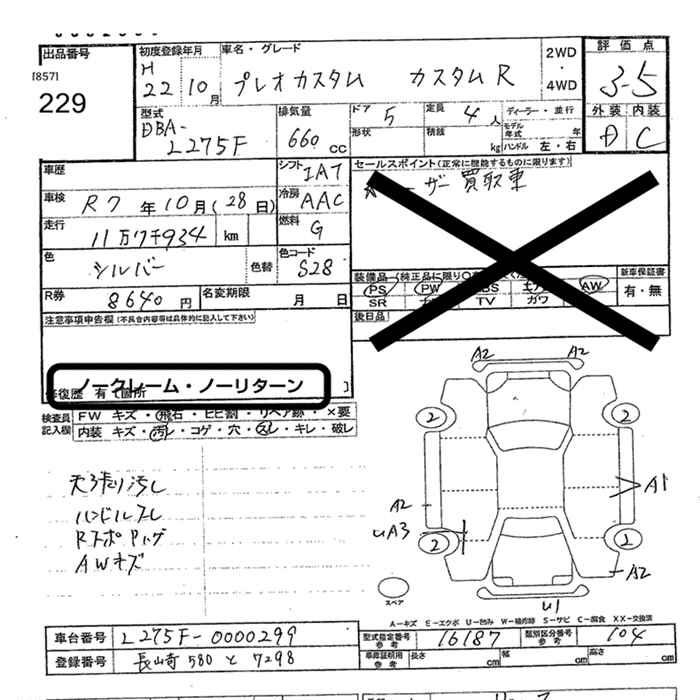 出品番号
[857]
229
初度登録年月
H 22 10月
車名・グレード
プレオカスタム カスタムR
2WD
・
4WD
評価点
3-5
外装 内装
C
型式
DBA-
L275F
排気量
660 cc
ドア 5
定員 4人
ディーラー・並行
形状
積載 kg
モデル年式 年
ハンドル 左・右
車歴
シフト IAT
セールスポイント(正常に機能するものに限ります)
ザー買取車
車検 R7年10月(28日)
冷房 AAC
走行 11万7千934 km
燃料 G
色 シルバー 色替
色コード S28
装備品(純正品に限り
新車保証書
有・無
PS PW AW
SR TV
R券 8640円
名変期限 月 日
後日品
注意事項申告欄(不具合内容等は具体的に記入して下さい)
ノークレーム・ノーリターン
修復歴 有 箇所
検査員記入欄
FW キズ・飛石・ヒビ割・リペア跡・×要
内装 キズ・汚レ・コゲ・穴・スレ・キレ・破レ
天張り汚し
ハンドルスレ
AWキズ
A2 A2
2 2
A2 A1
UA3
2 2
A2
U1
スペア
A-キズ E-エクボ U-凹み W-補修跡 S-サビ C-腐食 XX-交換済
車台番号 L275F-0000299
型式指定番号 参考 16187
類別区分番号 参考 104
登録番号 長崎 580 と 7298
車庫証明用 参考
長さ cm 幅 cm 高さ cm